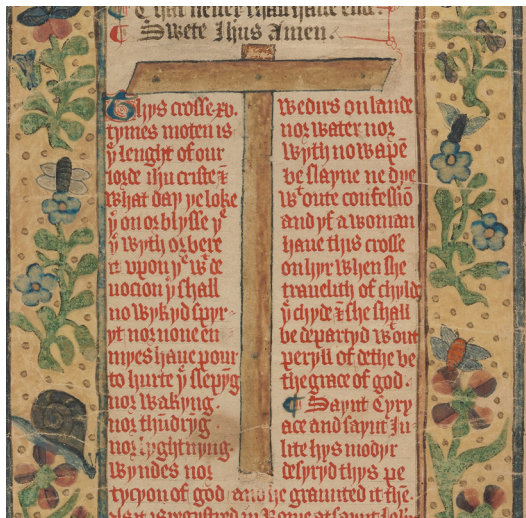 That neuer shall haue end.
¶ Swete Ihus Amen.
Thys crosse xv.
tymes moten is
yͤ lenght of our
lorde ihu criste &
What day ye loke
yͤ on or blysse yͤ
yͤ wyth or bere
it vpon yͤ wͭ de
uocion yͤ shall
no wykyd spyr-
yt nor none en
myes haue pour
to hurte yͤ slepyg
nor wakyng.
nor thūdryg.
nor lyghtnyng.
Wyndes nor
Wedirs on lande
nor water nor
wyth no wapē
be slayne ne dye
wͭ oute confessiō
and yf a woman
haue thys crosse
on hyr when she
traueluth of chyld
yͤ chyde & she shall
be departyd wͭ out
peryll of dethe be
the grace of god.
¶ Saynt Cyry
ace and saynt Iu-
lite hys modyr
desyryd thys pe
tycyon of god and he graunted it the-
is regestred in Rome at saynt